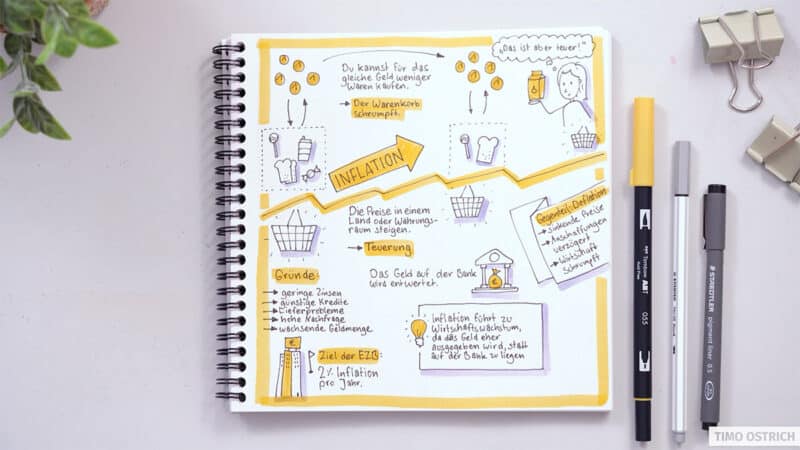 „Das ist aber teuer!“
Du kannst für das
gleiche Geld weniger
Waren kaufen.
→ Der Warenkorb
schrumpft.
INFLATION
Die Preise in einem
Land oder Währungs-
raum steigen.
→ Teuerung
Gegenteil: Deflation
→ sinkende Preise
→ Anschaffungen
verzögert
→ Wirtschaft
schrumpft
Gründe:
→ geringe Zinsen
→ günstige Kredite
→ Lieferprobleme
→ hohe Nachfrage
→ wachsende Geldmenge
Das Geld auf der Bank
wird entwertet.
€
Inflation führt zu
Wirtschaftswachstum,
da das Geld eher
ausgegeben wird, statt
auf der Bank zu liegen
€
Ziel der EZB:
2% Inflation
pro Jahr.
Tombow ABT
055
STAEDTLER
pigment liner 0.5
TIMO OSTRICH